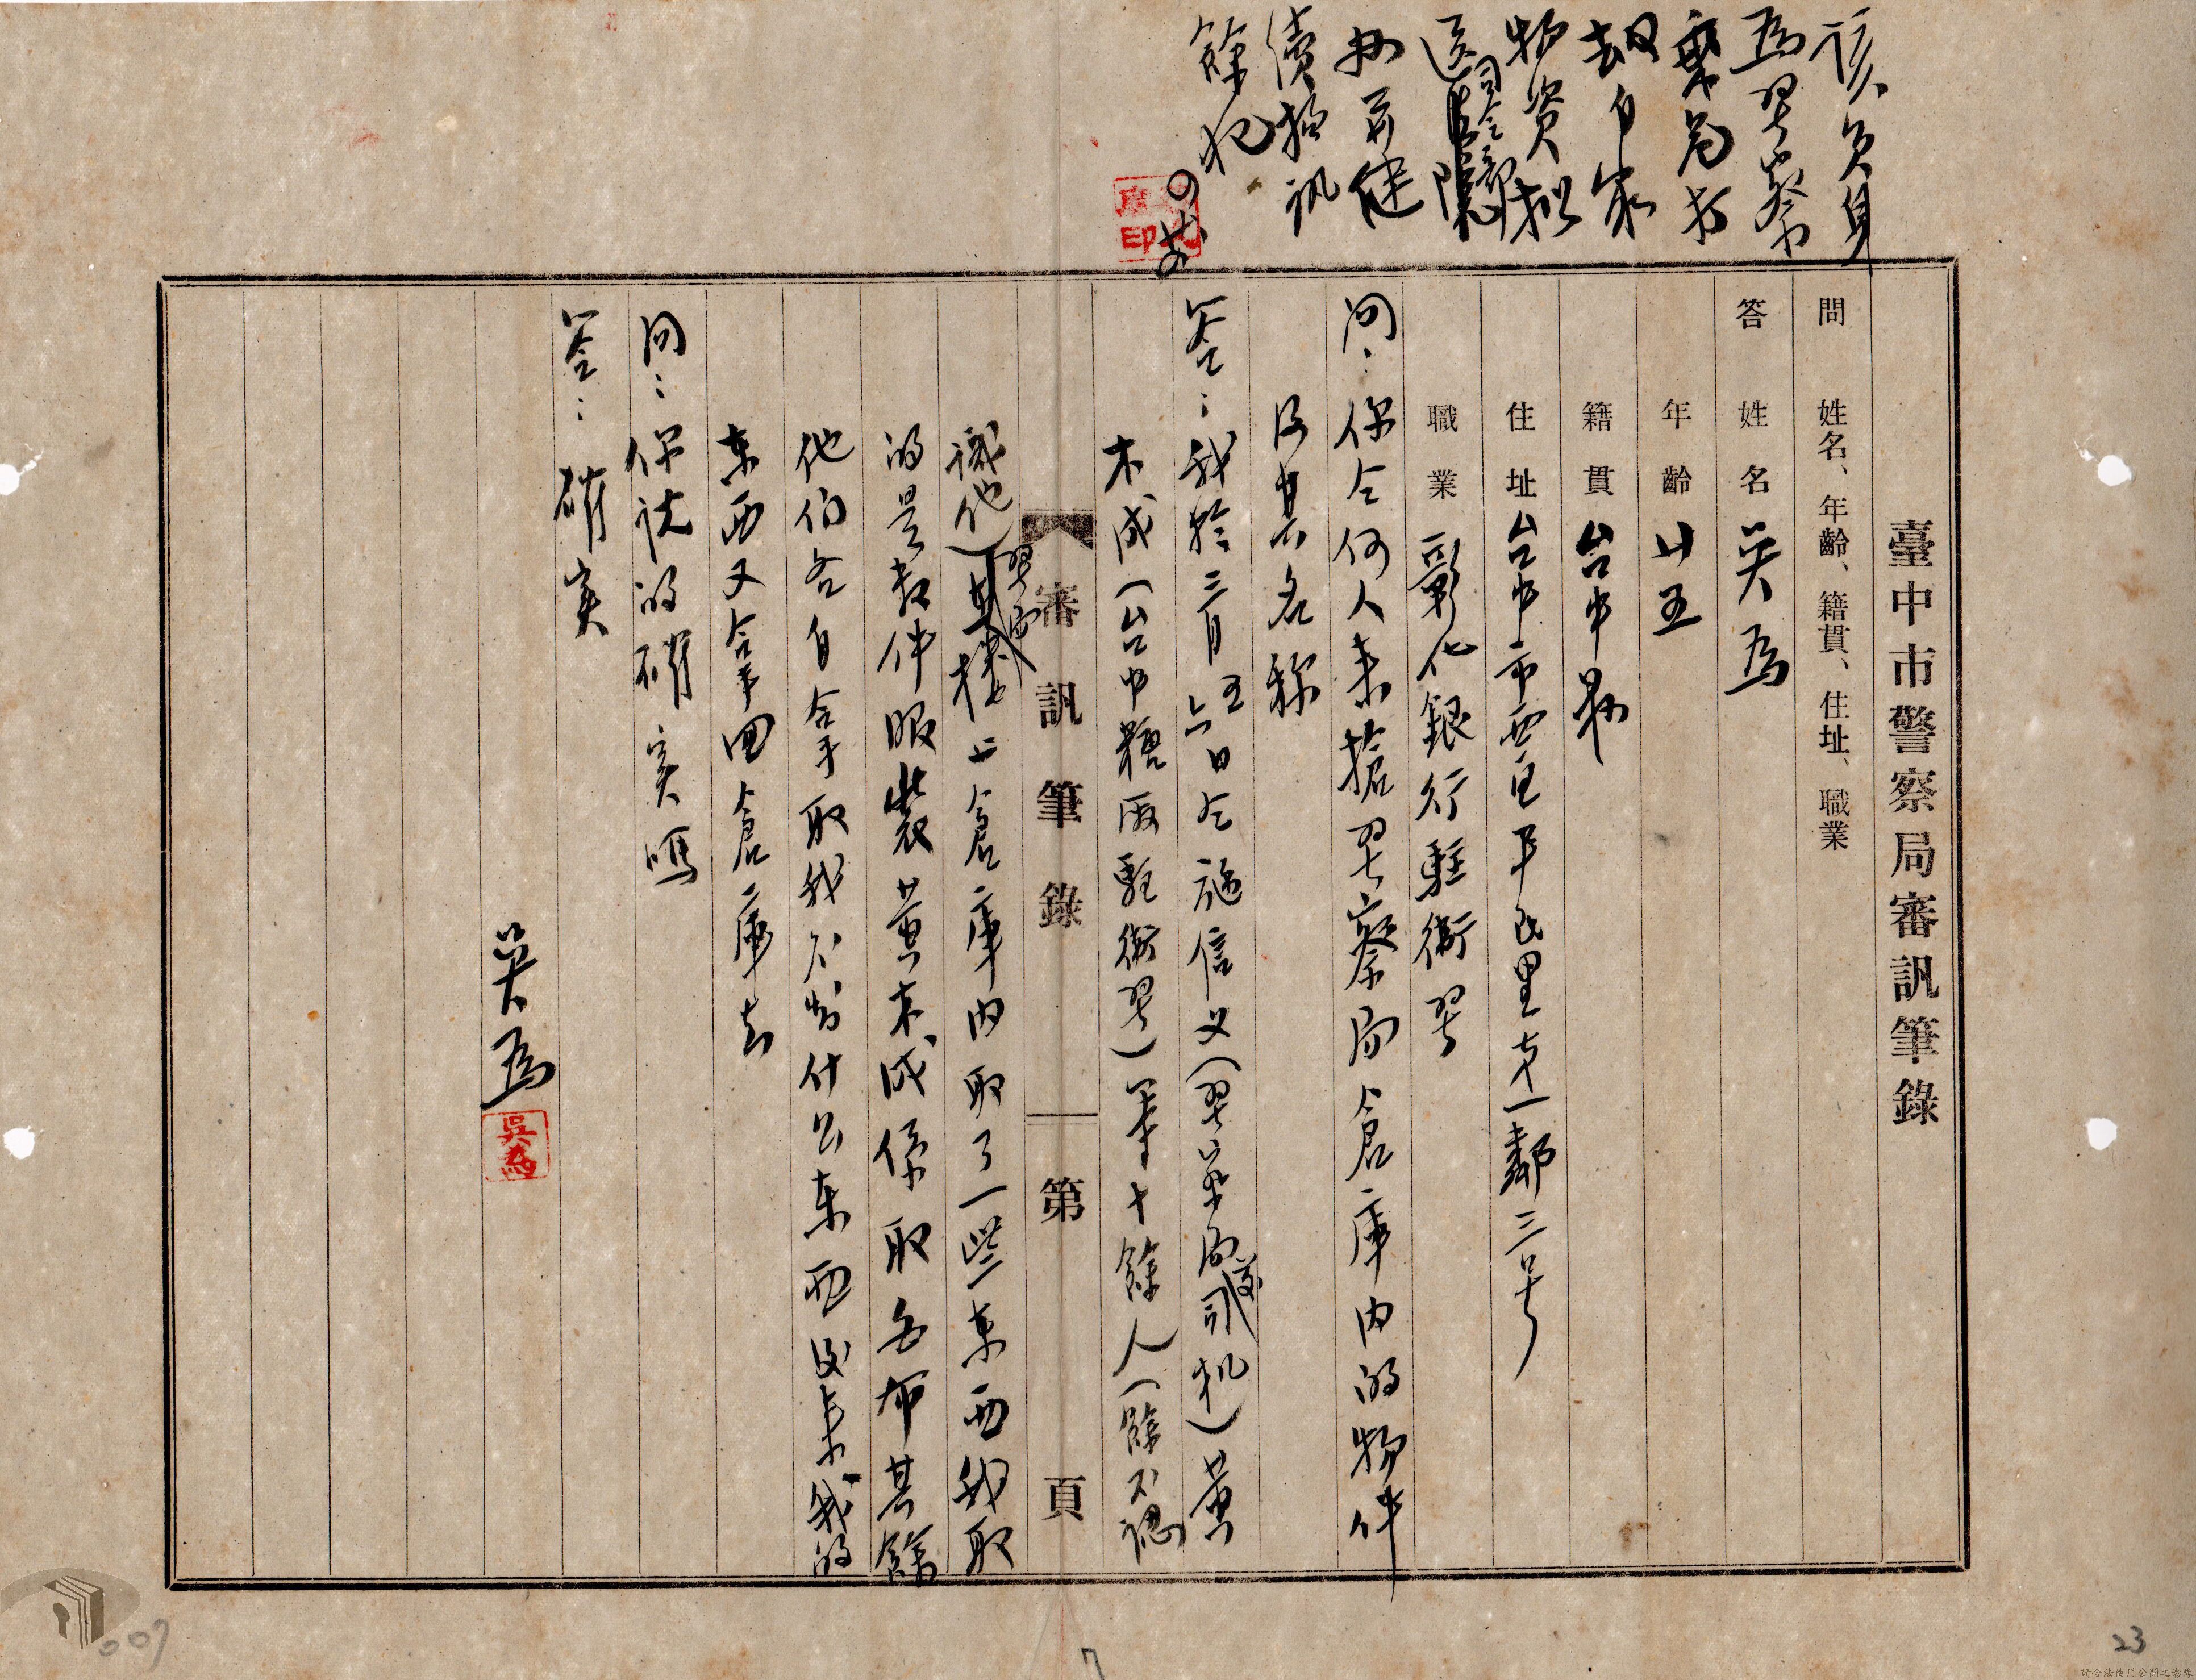 該員身
為警察
竟局部
劫自家
物資擬
送司令部
辦并繼
續拘訊
餘犯
臺中市警察局審訊筆錄
問 姓名、年齡、籍貫、住址、職業
答 姓名 吳為
年齡 廿五
籍貫 台中縣
住址 台中市西區平民里十一鄰三号
職業 彰化銀行駐衛警
問：你仝何人來搶警察局倉庫內的物件
及其名称
答：我於三月五日仝施信义(警察局司机)黃
木成(台中糖廠駐衛警)等十餘人(餘不認
審訊筆錄 第 頁
識他)警局樓上倉庫內取了一些東西我取
的是数件服裝黃木成係取白布其餘
他们各自拿取我不知什么東西後來我的
東西又拿回倉庫去
問：你說的確实嗎
答：確实
吳為
吳為
007
7
23
請合法使用公開之影像